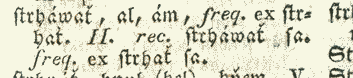 ſtrháwať, al, ám, freq. ex ſtr-
hať. II. rec. ſtrháwať ſa.
freq. ex ſtrhať ſa.